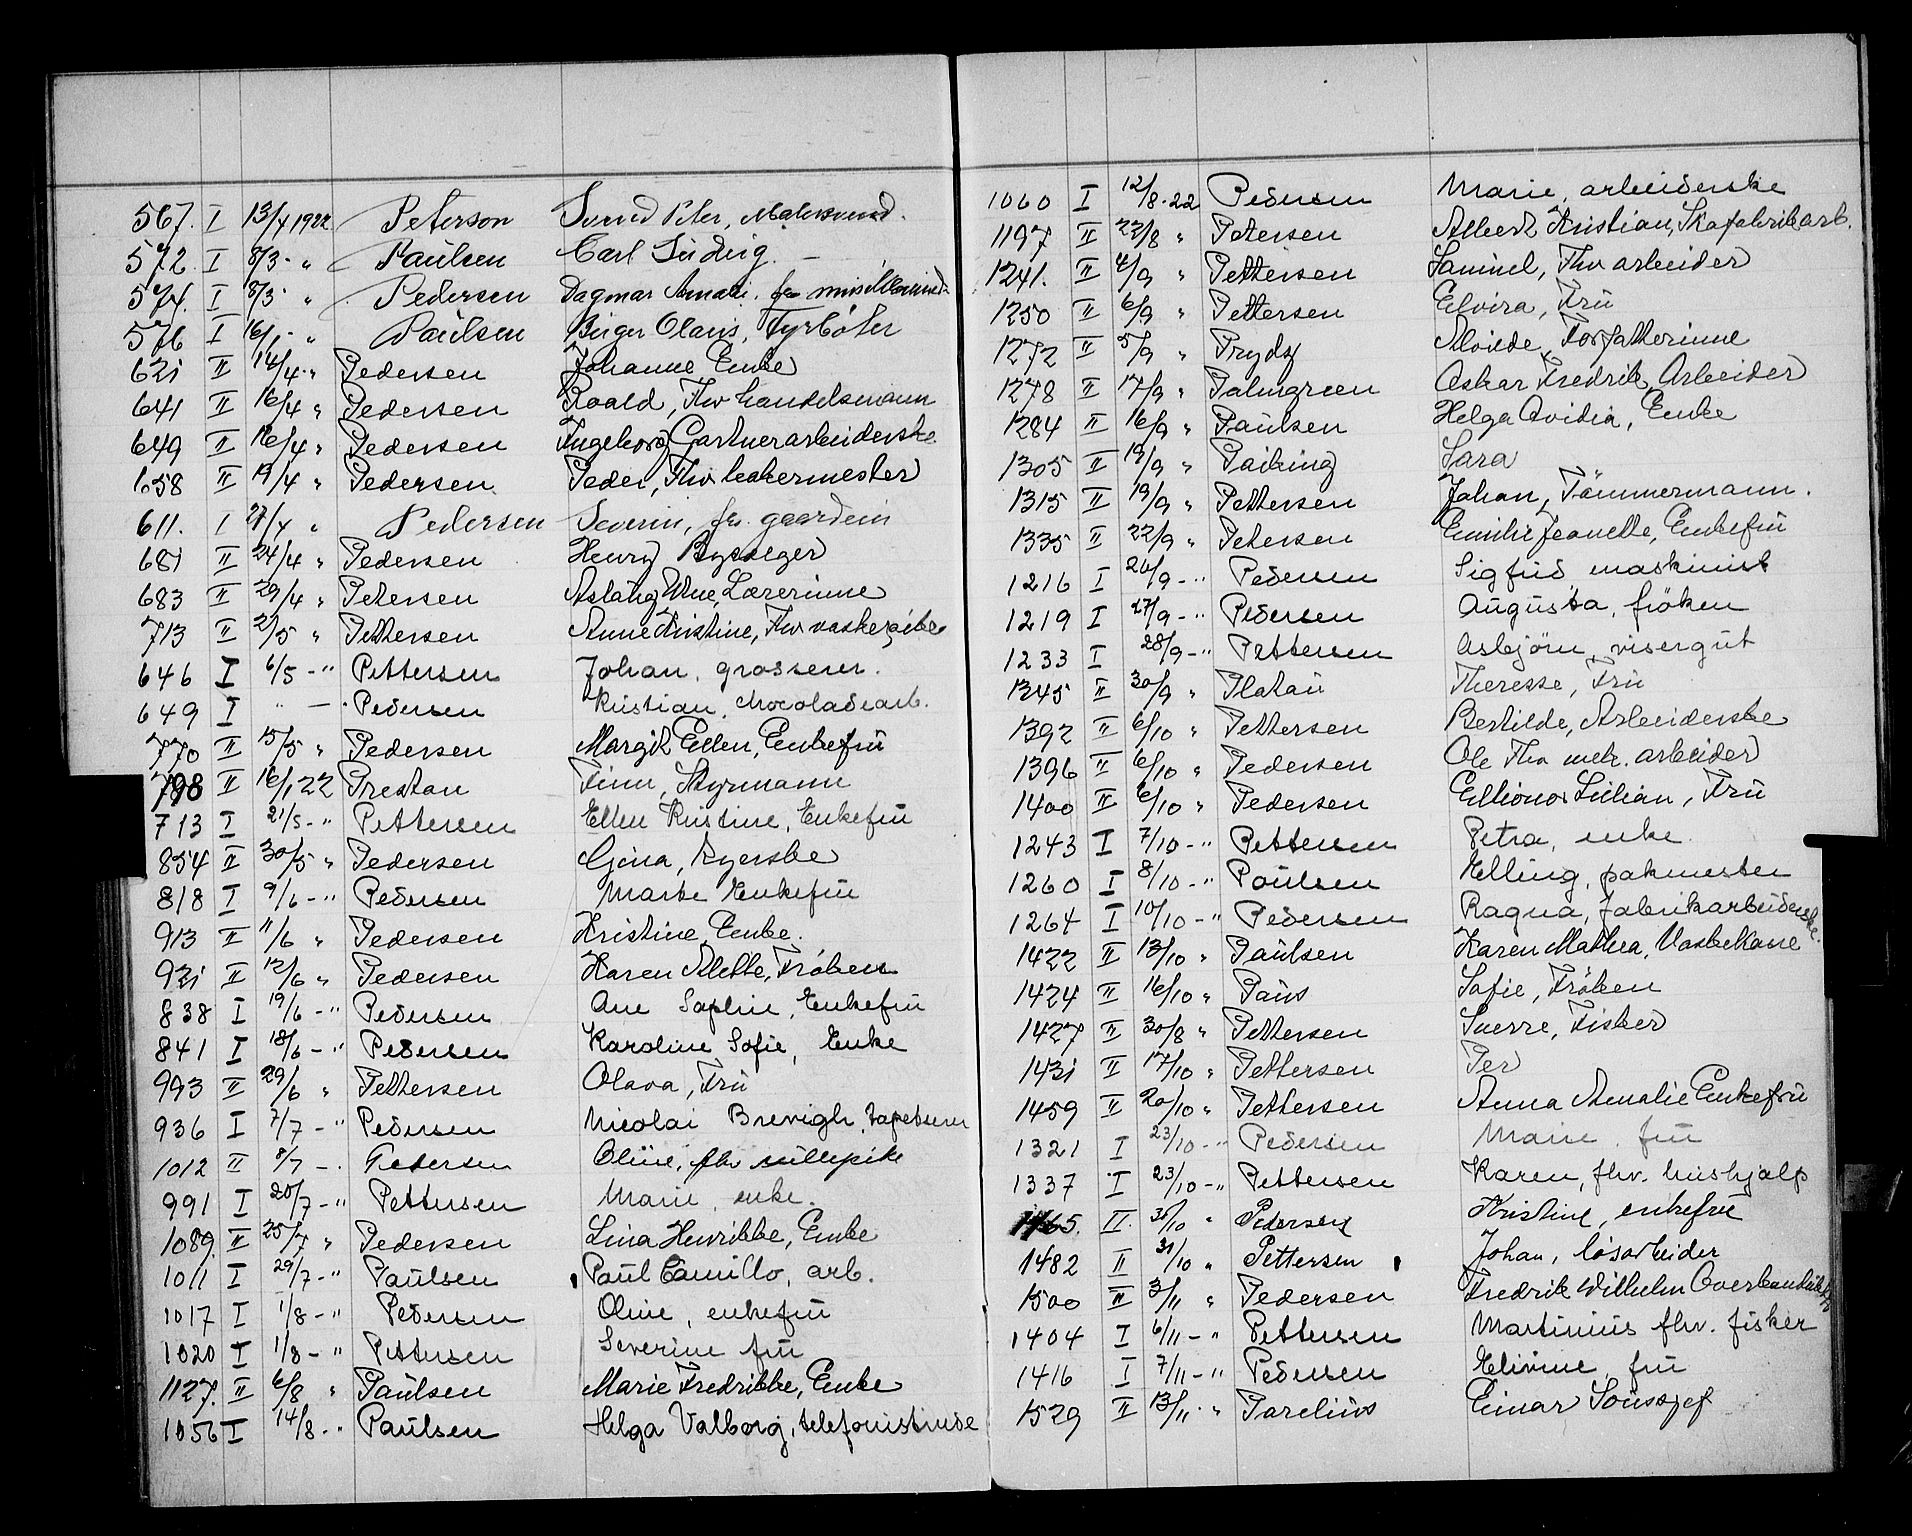 567. I 13/4 1922 Peterson Svend Peter, Malersvend.
572. I 8/3 - " Paulsen Carl Ludvig. -
574. I 8/3 " Pedersen Dagmar Amalie.
576 I 16/1 - " Paulsen Birger Olaus, Fyrböter
621 II 14/4 - " Pedersen Johanne Enke
641 II 16/4 " Pedersen Roald, Fhv handelsmann
649 II 16/4 " Pedersen Ingeborg Gartnerarbeiderske
658 II 19/4 " Pedersen Peder, Fhv bakermester
611. I 27/4 " Pedersen Severin, fv. gaardeier
681 II 24/4 " Pedersen Henry Bygaeger
683 II 29/4 " Petersen Aslaug Une, Lærerinne
713 II 2/5 " Pettersen Anne Kristine, Fhv vaskerijeier
646 I 6/5 - " Pettersen Johan, grosserer.
649 I " - Pedersen Kristian, chocoladearb.
770 II 15/5 " Pedersen Margit Ellen, Enkefru
798 II 16/1 22 Prestau Finn, Styrmann
713 I 21/5 - " Pettersen Ellen Kristine, Enkefru
854 II 30/5 " Pedersen Gina, Syerske
818 I 9/6 - " Pedersen Marte Enkefru
913 II 11/6 " Pedersen Kristine, Enke.
921 II 12/6 " Pedersen Karen Alette, Fröken
838 I 19/6 - " Pedersen Ane Sophie, Enkefru
841 I 18/6 - " Pedersen Karoline Sofie, Enke
993 II 29/6 " Pettersen Olava, Fru
936 I 7/7 - " Pedersen Nicolai Brevigh, tapetserer
1012 II 8/7 - . Pedersen Oline, fhv
991 I 20/7 - " Pettersen Marie, enke.
1089. II 25/7 " Pedersen Lina Henrikke, Enke
1011 I 29/7 - " Paulsen Paul Camillo, arb.
1017 I 1/8 - " Pedersen Oline, enkefru
1020 I 1/8 - " Pettersen Severine fru
1127. II 6/8 " Paulsen Marie Fredrikke, Enke
1056 I 14/8 - . Paulsen Helga Valborg, telefonistinde
1060 I 12/8 - 22 Pedersen Marie, arbeiderske
1197 II 22/8 " Petersen Albert Kristian, Skofabrikarb.
1241. II 4/9 " Pettersen Samuel, Fhv arbeider
1250 II 6/9 " Pettersen Elvira, Fru
1272 II 5/9 " Prydz Alvilde, Forfatterinne
1278 II 17/9 " Palmgreen Oskar Fredrik, Arbeider
1284 II 16/9 " Paulsen Helga Ovidia, Enke
1305 II 19/9 " Paiking Sara
1315 II 19/9 " Pettersen Johan, Tömmermann.
1335 II 22/9 " Petersen Emilie Jeanette, Enkefru
1216 I 26/9 - " Pedersen Sigfrid, maskinist
1219 I 27/9 - " Pedersen Augusta, fröken
1233 I 28/9 - " Pettersen Asbjörn, visergut
1345 II 30/9 " Platau Theresse, Fru
1392 II 6/10 " Pettersen Bertilde, Arbeiderske
1396 II 6/10 " Pedersen Ole Fhv mek. arbeider
1400 II 6/10 " Pedersen Ellionor Lilian, Fru
1243 I 7/10 - " Pettersen Petra, enke
1260 I 8/10 - " Poulsen Elling, pakmester
1264 I 10/10 - " Pedersen Ragna, fabrikarbeiderske.
1422 II 13/10 " Paulsen Karen Mathea, Vaskekone
1424 II 16/10 " Paus Sofie, Fröken
1427 II 30/8 " Pettersen Sverre, Fisker
1431 II 17/10 " Pettersen Per
1459 II 20/10 " Pettersen Anna Amalie Enkefru
1321 I 23/10 - " Pedersen Marie, fru
1337 I 23/10 - " Pettersen Karen, fhv. hushjalp
1465. II. 30/10 " Pedersen Kristine, enkefru
1482 II 31/10 " Pettersen Johan, løsarbeider
1500 II 3/11 " Pedersen Fredrik Wilhelm
1404 I 6/11 - " Pettersen Martinius fhv. fisker
1416 I 7/11 - " Pedersen Elivine, fru
1529 II 13/11 - " Parelius Einar Soussjef